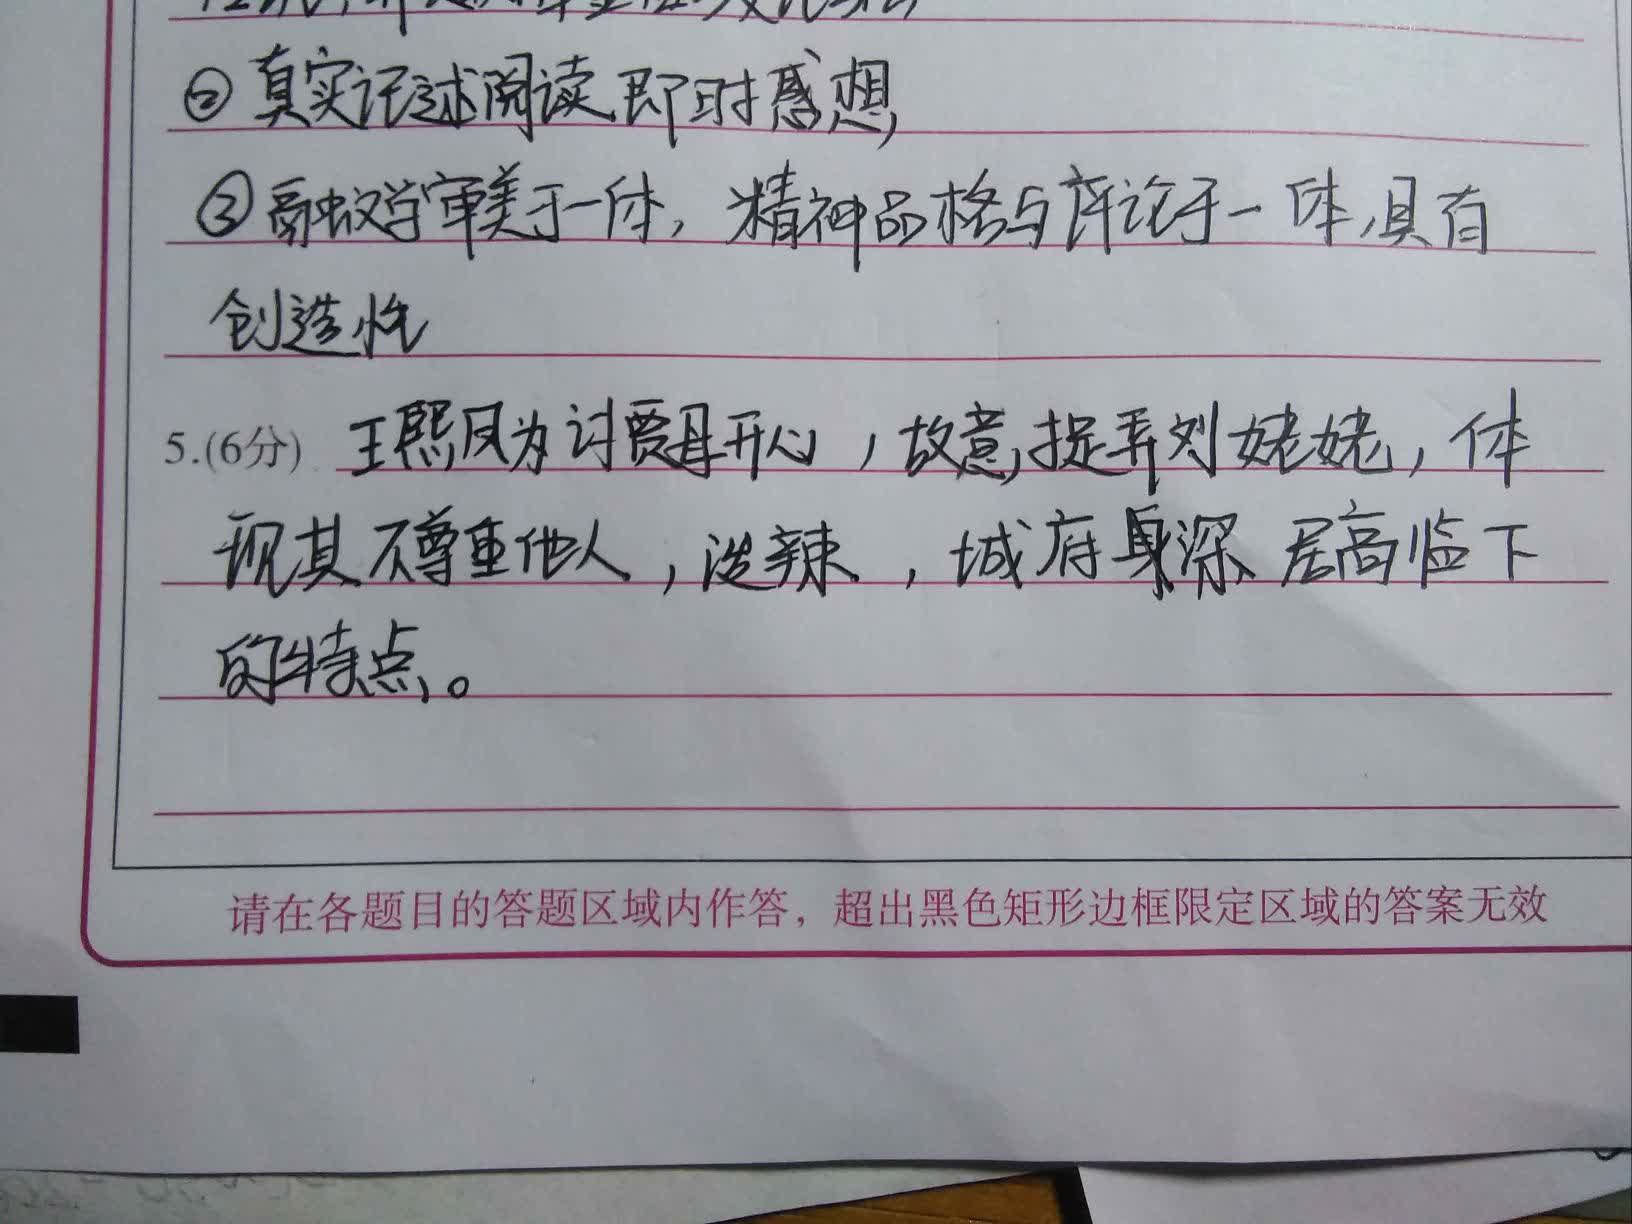 ②真实记述阅读即时感想
③融文学审美于一体，精神品格与评论于一体，具有
创造性
5.(6分) 王熙凤为讨贾母开心，故意捉弄刘姥姥，体
现其不尊重他人，泼辣，城府深 居高临下
的特点。
请在各题目的答题区域内作答，超出黑色矩形边框限定区域的答案无效